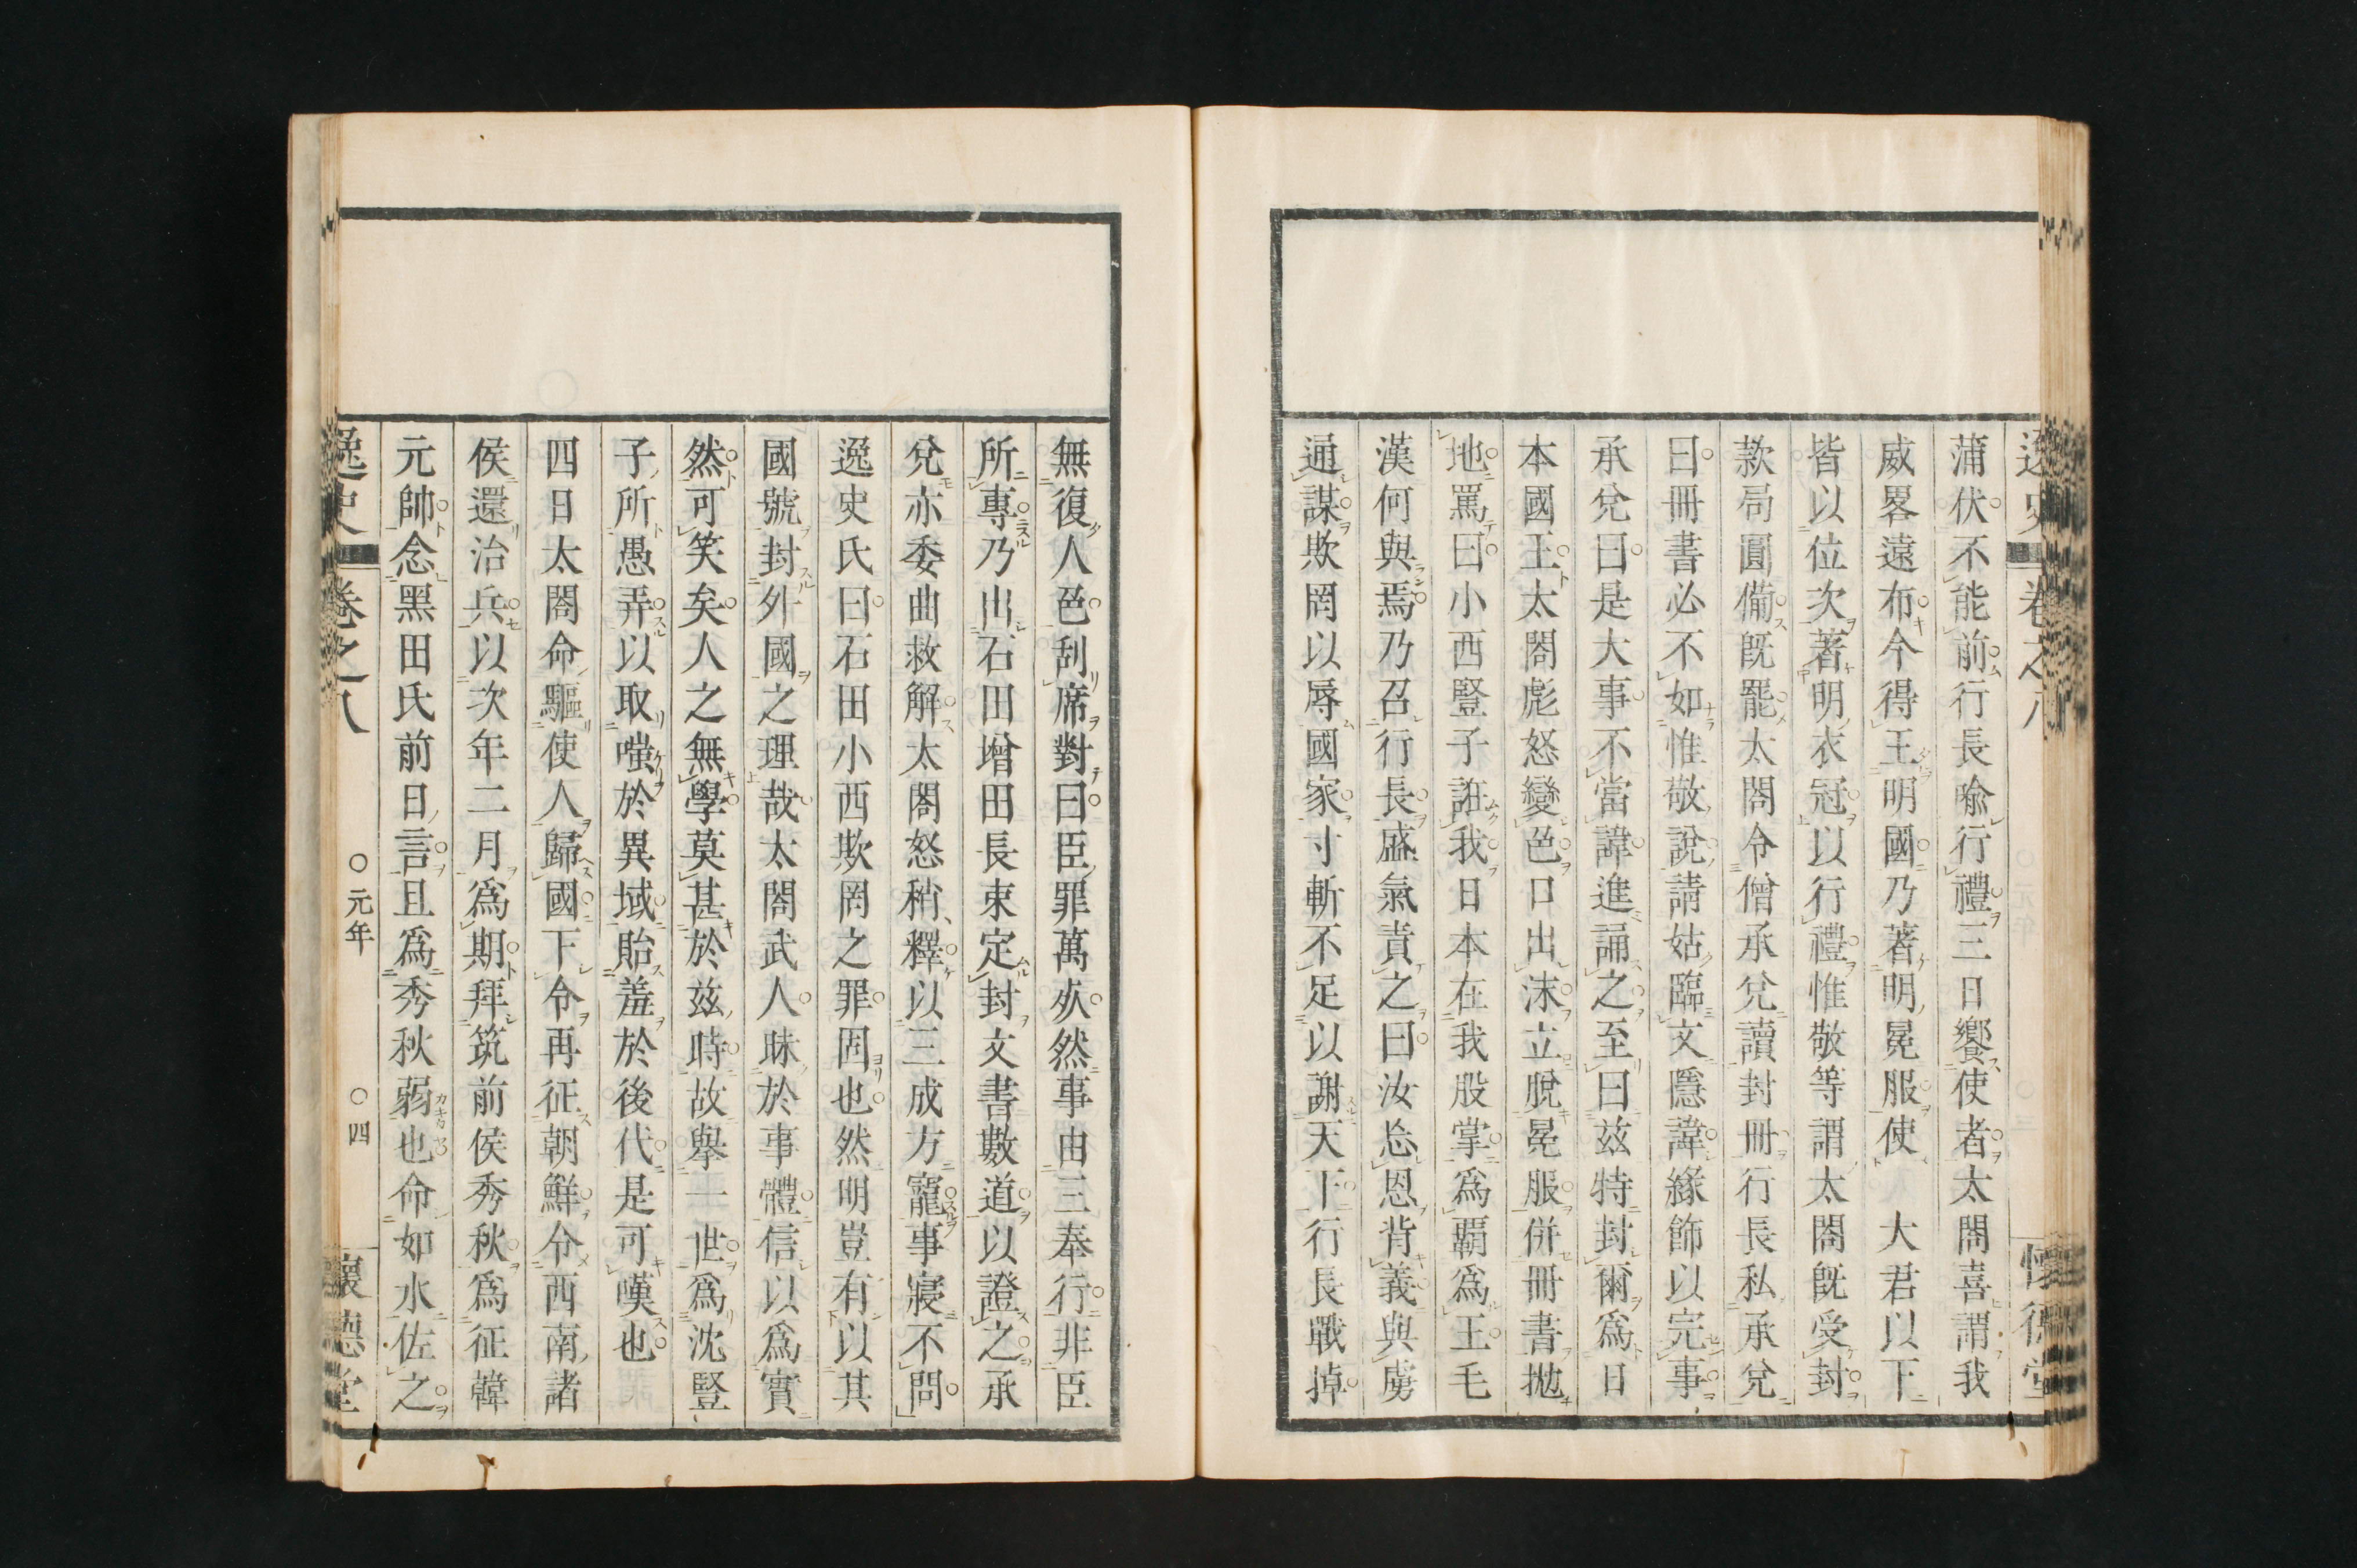 蒲伏不能前行長喩行禮三日饗使者太閤喜謂我
威畧遠布今得王明國乃著明冕服使 大君以下
皆以位次著明衣冠以行禮惟敬等謂太閤旣受封
款局圓備旣罷太閤令僧承兌讀封冊行長私承兌
曰冊書必不如惟敬說請姑臨文隱諱緣飾以完事
承兌曰是大事不當諱進誦之至曰茲特封爾爲日
本國王太閤彪怒變色口出沫立脫冕服併冊書拋
地罵曰小西豎子誑我日本在我股掌爲覇爲王毛
漢何與焉乃召行長盛氣責之曰汝忘恩背義與虜
通謀欺罔以辱國家寸斬不足以謝天下行長戰掉
無復人色刮席對曰臣罪萬死然事由三奉行非臣
所專乃出石田增田長束定封文書數道以證之承
兌亦委曲救解太閤怒稍釋以三成方寵事寢不問
逸史氏曰石田小西欺罔之罪固也然明豈有以其
國號封外國之理哉太閤武人昧於事體信以爲實
然可笑矣人之無學莫甚於茲時故擧一世爲沈豎
子所愚弄以取嗤於異域貽羞於後代是可嘆也
四日太閤命驅使人歸國下令再征朝鮮令西南諸
侯還治兵以次年二月爲期拜筑前侯秀秋爲征韓
元帥念黑田氏前日言且爲秀秋弱也命如水佐之
逸史 卷之八 ○元年 ○四 懷德堂